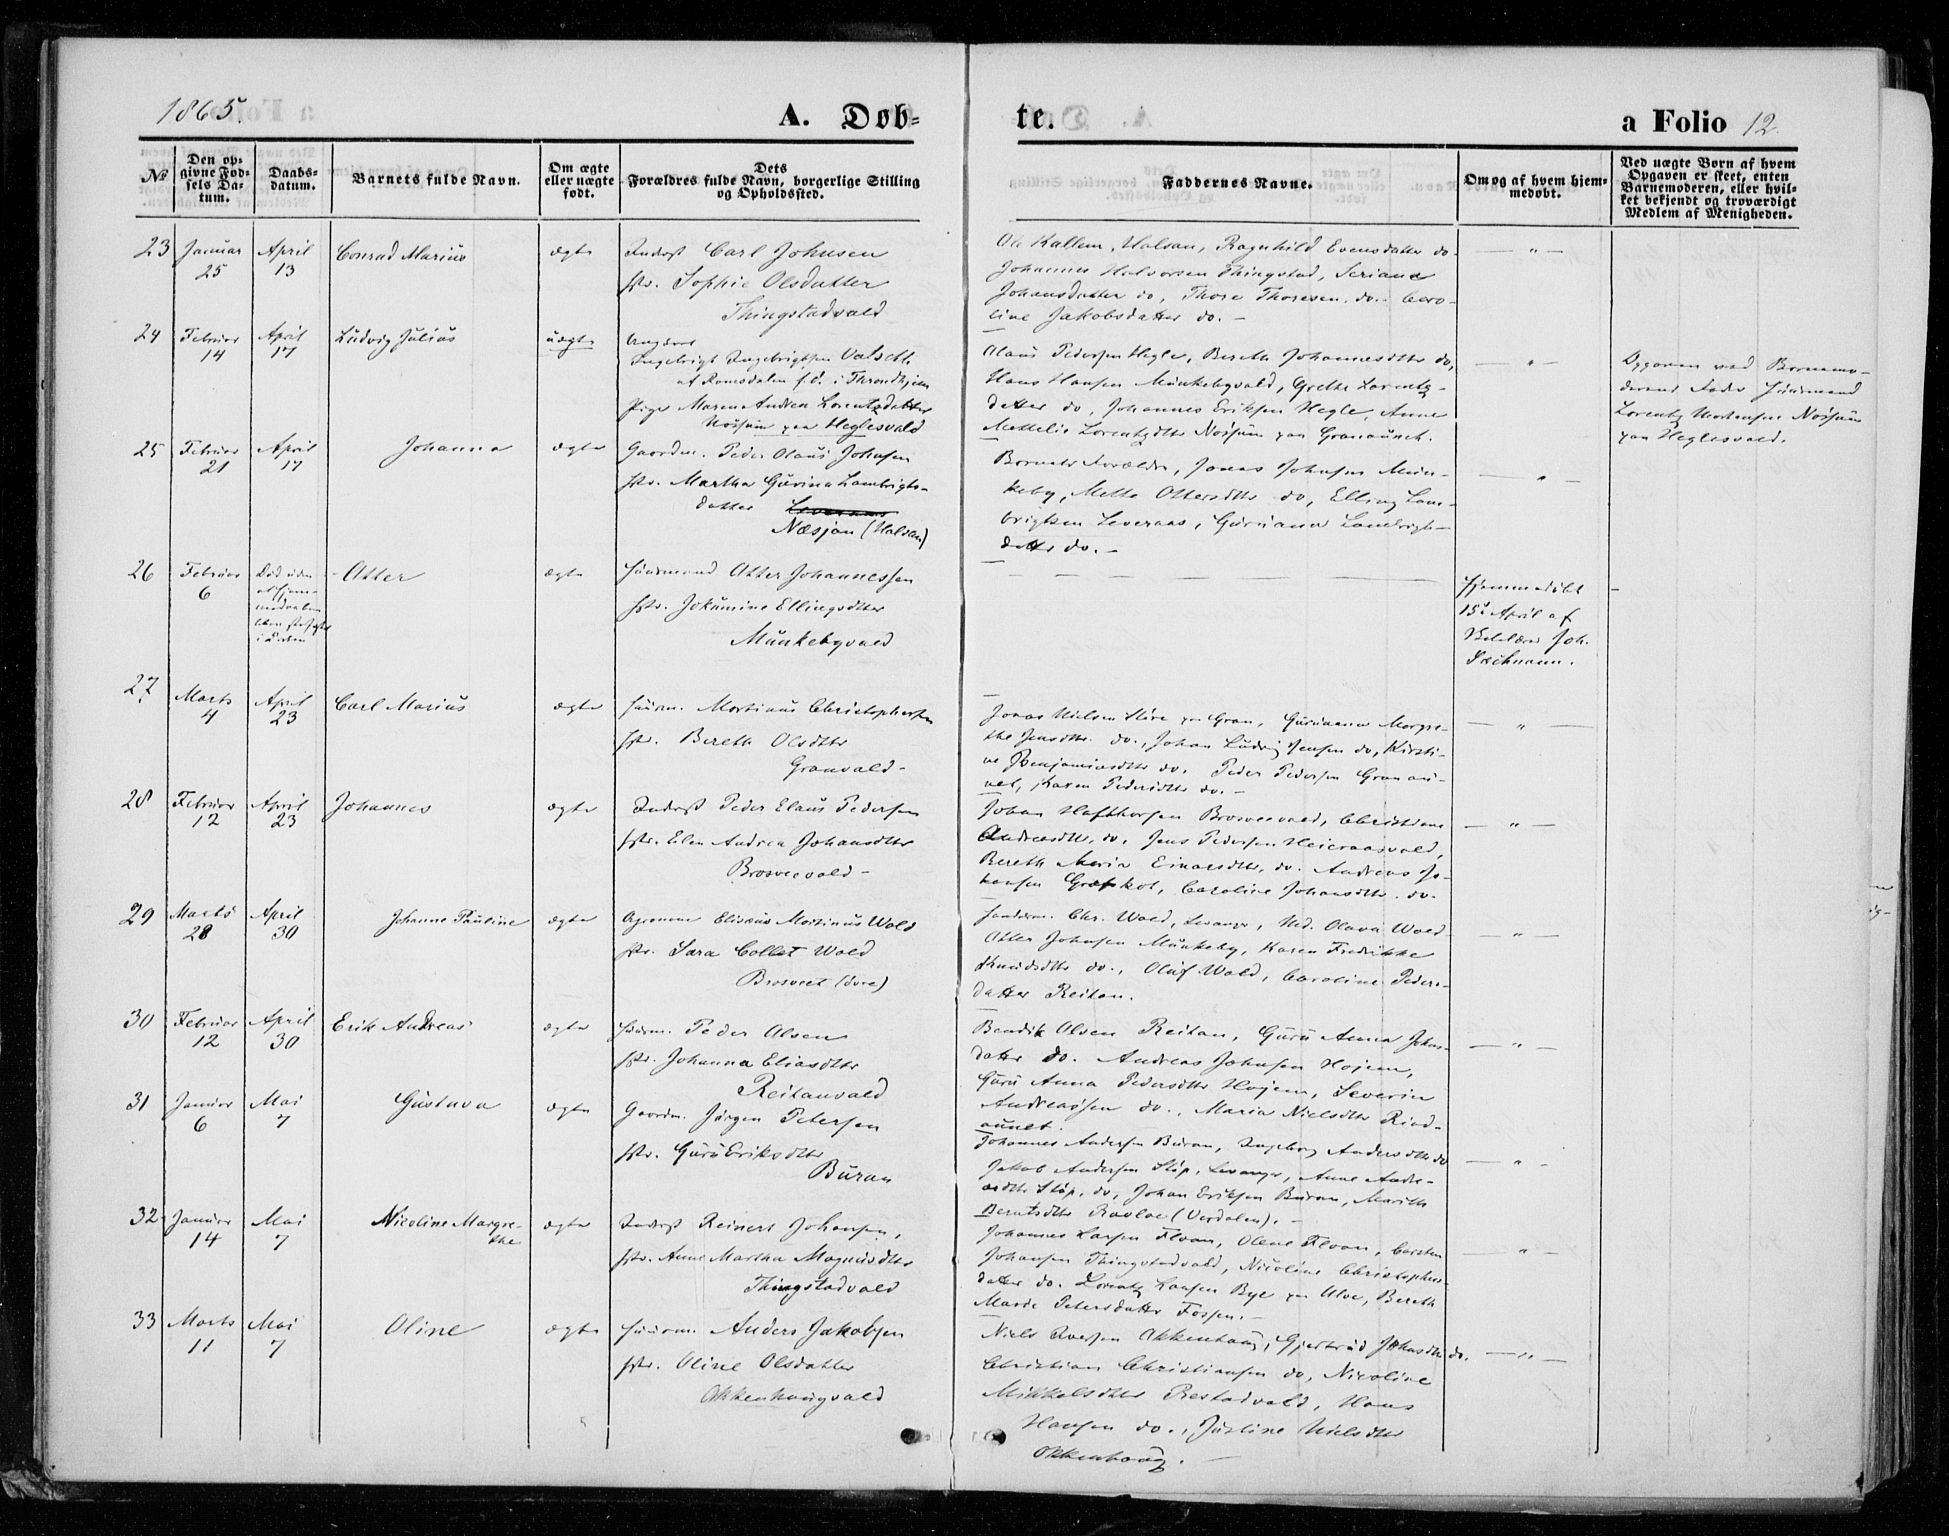 1865.
A. Døb-
te.
a Folio 12.
No
Den op-
givne Fød-
sels Da-
tum.
Daabs-
datum.
Barnets fulde Navn.
Om ægte
eller uægte
født.
Dets
Forældres fulde Navn, borgerlige Stilling
og Opholdssted.
Faddernes Navne.
Om og af hvem hjem-
medøbt.
Ved uægte Børn af hvem
Opgaven er skeet, enten
Barnemoderen, eller hvil-
ket bekjendt og troværdigt
Medlem af Menigheden.
23 Januar 25 April 13 Conrad Marius ægte Inderst Carl Johnsen
Sophie Olsdatter
Thingstadvald
Ole Kallem, Halsan, Ragnhild Evensdatter do
Johannes Halvorsen Thingstad, Seriana
Johansdatter do, Thore Thoresen do. Caro-
line Jakobsdatter do. -
24 Februar 14 April 17 Ludvig Julius uægte
Ingebrigt Ingebrigtsen Valseth
af Romsdalen f.t. i Throndhjem
Pige Maren Andrea Lorentzdatter
Nossum paa Heglesvald
Olaus Pedersen Hegle, Bereth Johannesdtr do,
Hans Hansen Munkebyvald, Grethe Lorentz-
datter do, Johannes Eriksen Hegle, Anne
Mettelie Lorentzdtr Nossum paa Granaunet.
Opgaven ved Barnemo-
derens Fader Huusmand
Lorentz Mortensen Nossum
paa Heglesvald.
25 Februar 21 April 17 Johanna ægte Gaardm. Peder Olaus Johnsen
Martha Gurina Lambrigts-
datter Leveraas
Næsjan (Halsan)
Barnets Forældre, Jonas Johnsen Mun-
keby, Mette Ottersdtr do, Elling Lam-
brigtsen Leveraas, Guruanna Lambrigts-
datter do. -
26 Februar 6 Otter ægte Huusmand Otter Johannessen
Jokumine Ellingsdtter
Munkebyvald
Hjemmedøbt
15de April af
Joh.
27 Marts 4 April 23 Carl Marius ægte Huusm. Martinus Christophersen
Bereth Olsdtr
Granvald -
Jonas Nielsen Støre paa Gran, Guruanna Margre-
the Jensdtr do., Johan Ludvig Jensen do, Kirsti-
ne Benjaminsdtr do. Peder Pedersen Granau-
net, Karen Pedersdtr do. -
28 Februar 12 April 23 Johannes ægte Inderst Peder Elaus Pedersen
Elen Andrea Johansdtr
Brosveevald -
Johan Hafthorsen Brosveevald, Christiane
Andreasdtr, do. Jens Pedersen Heieraasvald,
Bereth Maria Einarsdtr, do. Andreas Jo-
hansen Græskot, Caroline Johansdtr. do.
29 Marts 28 April 30 Johanne Pauline ægte Agronom Elisæus Martinus Wold
Sara Collet Wold
Brosveet (øvre)
Chr. Wold, Levanger, Mad. Olava Wold
Otter Johnsen Munkeby, Karen Fredrikke
Knudsdtr do., Oluf Wold, Caroline Peders-
datter Reitan.
30 Februar 12 April 30 Erik Andreas ægte Huusm. Peder Olsen
Johanna Eliasdtr
Reitanvald
Bendik Olsen Reitan, Guru Anna Johns-
datter do. Andreas Johnsen Hojem,
Guru Anna Pedersdtr Hojem, Severin
Andreassen do., Maria Nielsdtr Riad-
aunet.
31 Januar 6 Mai 7 Gustava ægte Gaardm. Jørgen Petersen
Guru Eriksdtr
Buran
Johannes Andersen Buran, Ingeborg Andersdtr do
Jakob Andersen Støp, Levanger, Anne Andre-
asdtr Støp, do, Johan Eriksen Buran, Marith
Berntsdtr Ravloe (Verdalen). -
32 Januar 14 Mai 7 Nicoline Margre-
the ægte Inderst Reinert Johansen,
Anne Martha Magnusdtr
Thingstadvald
Johannes Larsen Floan, Olene Floan, Carsten
Johansen Thingstadvald, Nicoline Christophers-
datter do. Lorentz Larsen Bye paa Ulve, Bereth
Marie Petersdatter Fossen. -
33 Marts 11 Mai 7 Oline ægte Huusm. Anders Jakobsen
Oline Olsdatter
Okkenhaugvald
Niels Iversen Okkenhaug, Gjertrud Johnsdtr do.
Christian Christiansen do, Nicoline
Mikkelsdtr Restadvald, Hans
Hansen do., Justine Nielsdtr
Okkenhaug. -